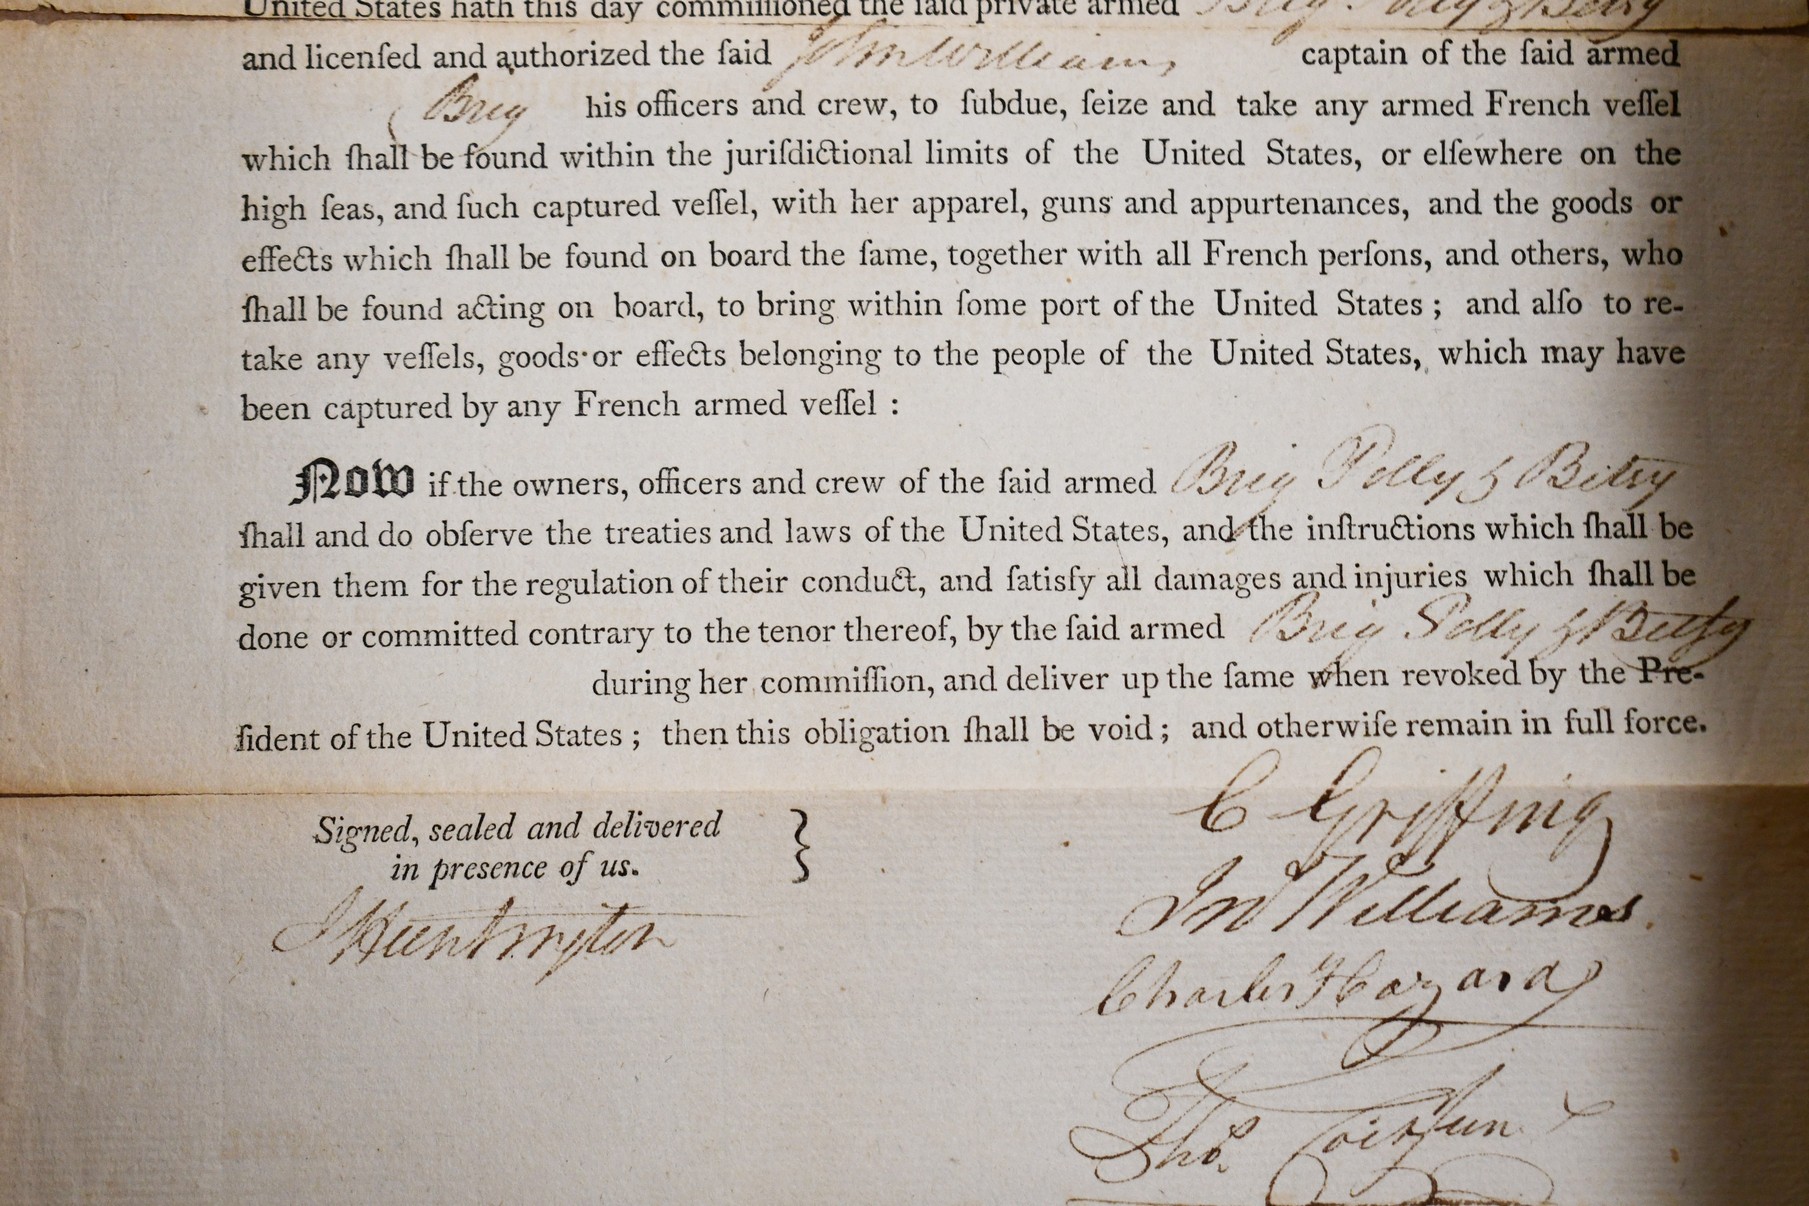 United States hath this day commiſſioned the ſaid private armed Brig Polly & Betsy
and licenſed and authorized the ſaid John Williams captain of the ſaid armed
Brig his officers and crew, to ſubdue, ſeize and take any armed French veſſel
which ſhall be found within the juriſdictional limits of the United States, or elſewhere on the
high ſeas, and ſuch captured veſſel, with her apparel, guns and appurtenances, and the goods or
effects which ſhall be found on board the ſame, together with all French perſons, and others, who
ſhall be found acting on board, to bring within ſome port of the United States ; and alſo to re-
take any veſſels, goods or effects belonging to the people of the United States, which may have
been captured by any French armed veſſel :
Now if the owners, officers and crew of the ſaid armed Brig Polly & Betsy
ſhall and do obſerve the treaties and laws of the United States, and the inſtructions which ſhall be
given them for the regulation of their conduct, and ſatisfy all damages and injuries which ſhall be
done or committed contrary to the tenor thereof, by the ſaid armed Brig Polly & Betsy
during her commiſſion, and deliver up the ſame when revoked by the Pre-
ſident of the United States ; then this obligation ſhall be void ; and otherwiſe remain in full force.
Signed, sealed and delivered
in presence of us.
J Huntington
C Griffing
Jno Williams.
Charles Hazard
Thos.